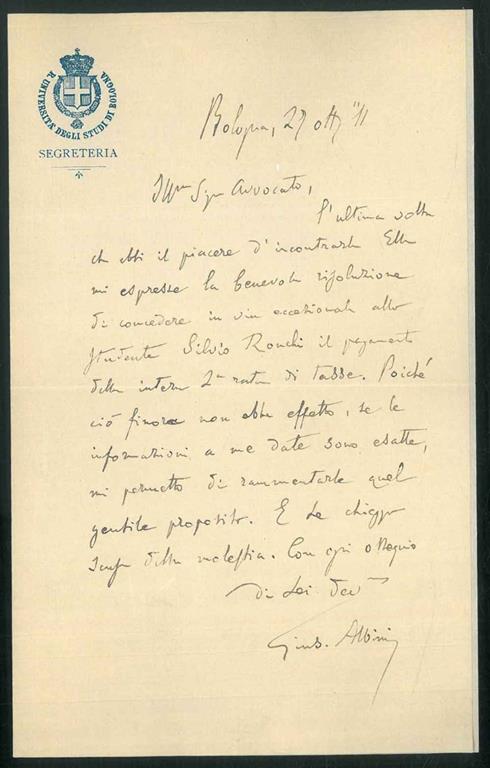 R. UNIVERSITÀ DEGLI STUDI DI BOLOGNA
SEGRETERIA
Bologna, 27 ott. '11
Ill.mo Sig. Avvocato,
l'ultima volta
che ebbi il piacere d'incontrarla Ella
mi espresse la benevola risoluzione
di concedere in via eccezionale allo
studente Silvio Ronchi il pagamento
della intera 2a rata di tasse. Poiché
ciò finora non ebbe effetto, se le
informazioni a me date sono esatte,
mi permetto di rammentarle quel
gentile proposito. E Le chieggo
scusa della molestia. Con ogni ossequio
di Lei dev.
Gius. Albini